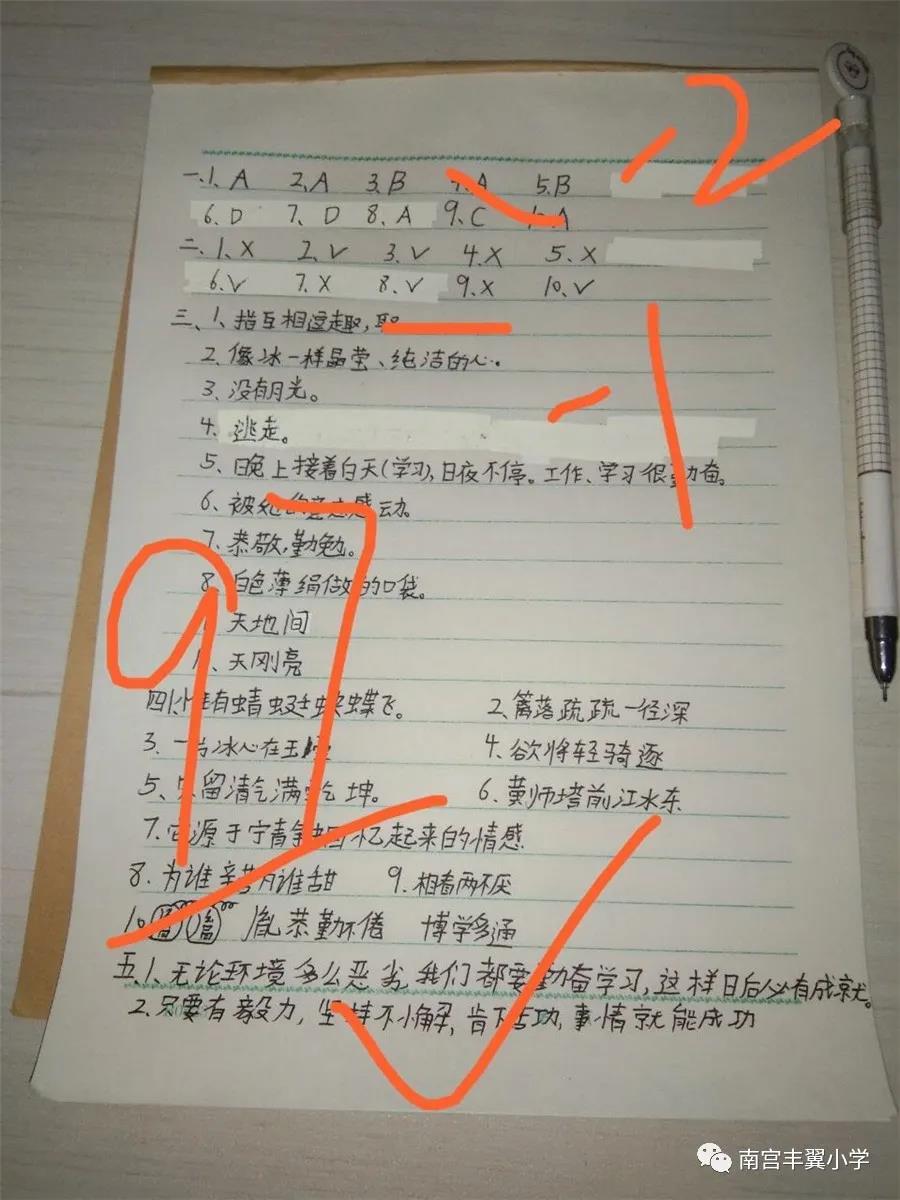 -2
一.1、A 2、A 3、B 4、A 5、B
6、D 7、D 8、A 9、C 10、A
二、1、X 2、√ 3、√ 4、X 5、X
6、√ 7、X 8、√ 9、X 10、√
三、1、指互相逗趣,取
-1
2、像冰一样晶莹、纯洁的心。
3、没有月光。
4、逃走。
5、晚上接着白天(学习),日夜不停。工作、学习很勤奋。
6、被她的意志感动。
7、恭敬,勤勉。
8、白色薄绢做的口袋。
97
天地间
天刚亮
四1、少年有蜻蜓蛱蝶飞。 2、篱落疏疏一径深
3、一片冰心在玉壶 4、欲将轻骑逐
5、只留清气满乾坤。 6、黄师塔前江水东
7、它源于宁静中回忆起来的情感
8、为谁辛苦为谁甜 9、相看两不厌
10、胤恭勤不倦 博学多通
五、1、无论环境多么恶劣,我们都要勤奋学习,这样日后必有成就。
2、只要有毅力,坚持不懈,肯下苦功,事情就能成功
南宫丰翼小学